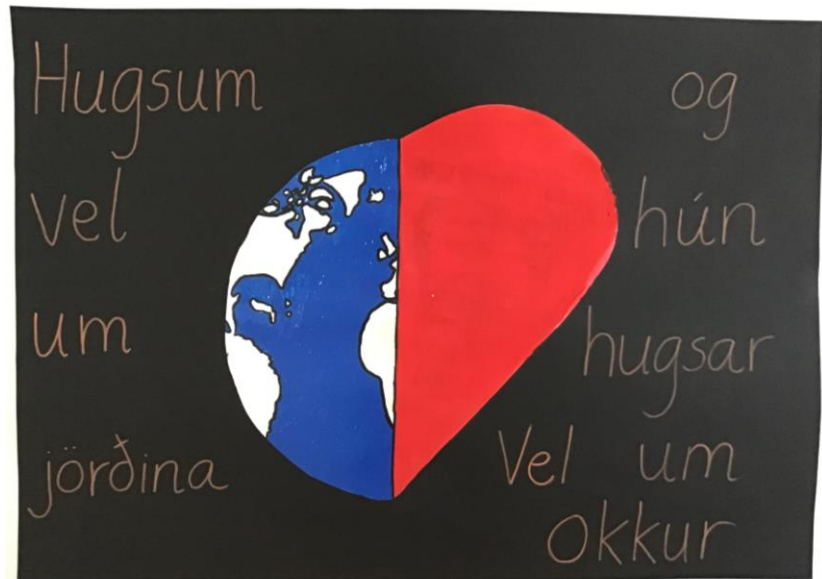 Hugsum
vel
um
jörðina
og
hún
hugsar
Vel um
okkur